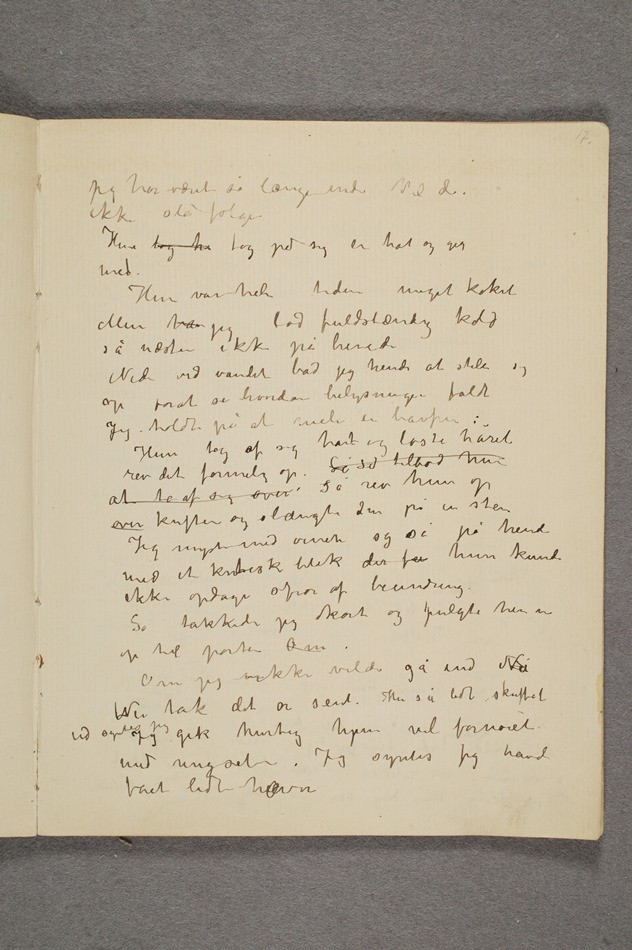 17.
Jeg har været så længe inde Vil de
ikke stå følge
Hun tog hu tog på sig en hat og gik
med.
Hun var hele tiden meget koket
Men han jeg lod fuldstændig kold
så næsten ikke på hende
Nede ved vandet bad jeg hende at stille sig
op forat se hvordan belysningen faldt
Jeg holdt på at male en havfru :
Hun tog af sig hatt og løste håret
rev det formelig op. Så så tilbød hun
at ta af sig over Så rev hun op
over kuften og slængte den på en sten
Jeg myste med øinene og så på hende
med et kritisk blik der fa hun kunde
ikke opdage spor af beundring.
Så takkede jeg skort og fulgte henne
op til porten Om.
Om jeg ikke vilde gå ind Nei
Nei tak det er sent. Hun så lidt skuffet
ud syntes jeg
Jeg gik hurtig hjem vel fornøiet
med mig selv. Jeg syntes jeg havde
faaet lidt hævn